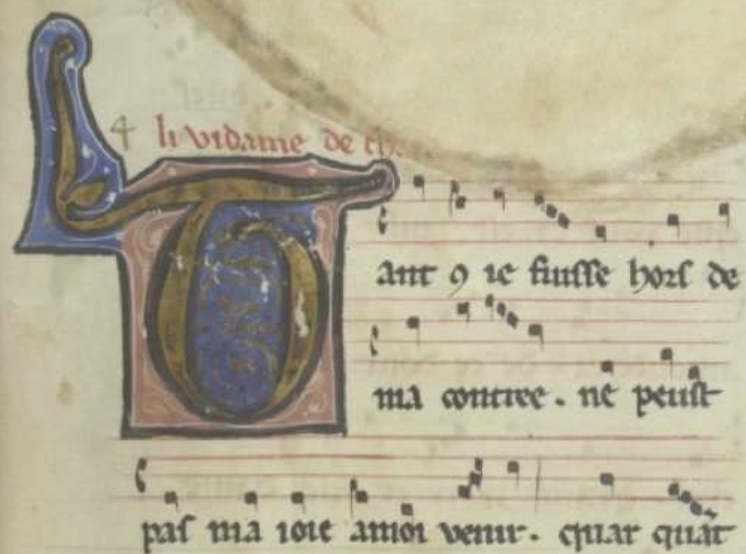 li vidame de ch
Tant ꝯ ie fuisse hors de
ma contree . ne peust
pas ma ioie amoi uenir . quar quãt